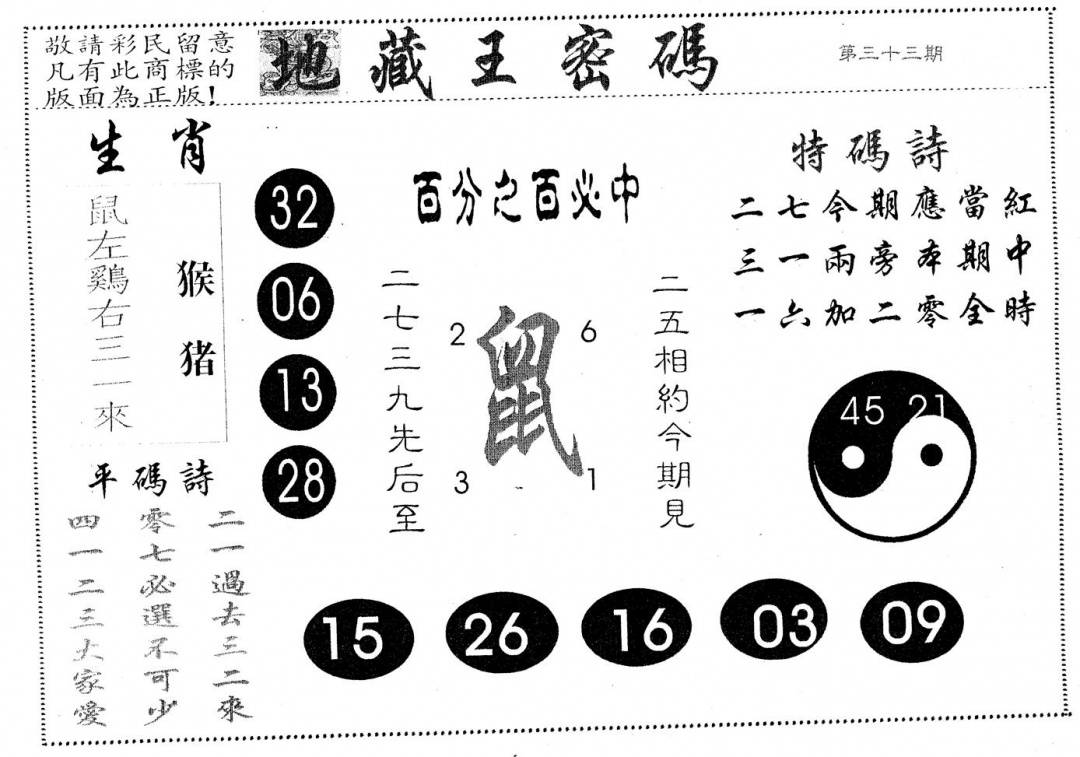 敬請彩民留意
凡有此商標的
版面為正版!
地藏王密碼
第三十三期
生肖
鼠左鷄右三一來
猴猪
32
06
13
28
平碼詩
二一過去三二來
零七必選不可少
四一二三大家愛
百分之百必中
二七三九先后至
2 6
鼠
3 - 1
二五相約今期見
特碼詩
二七今期應當紅
三一兩旁本期中
一六加二零全時
45 21
15 26 16 03 09